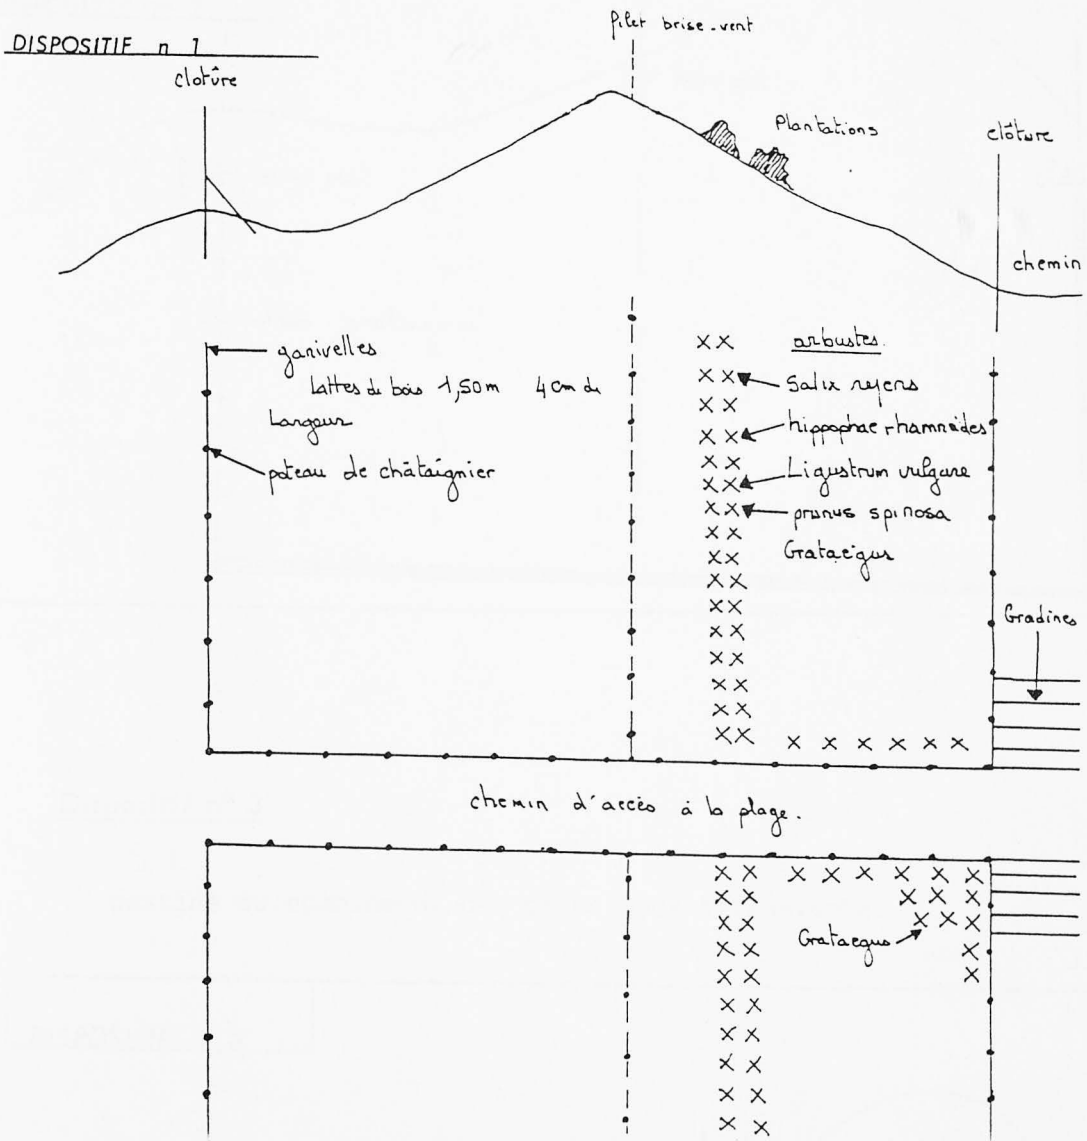 DISPOSITIF n 1
clotûre
filet brise-vent
Plantations
clôture
chemin
ganivelles
lattes de bois 1,50m 4cm de
Largeur
poteau de châtaignier
arbustes.
Salix repens
hippophae rhamnoïdes
Ligustrum vulgare
prunus spinosa
Grataegus
Gradines
chemin d'accès à la plage.
Grataegus